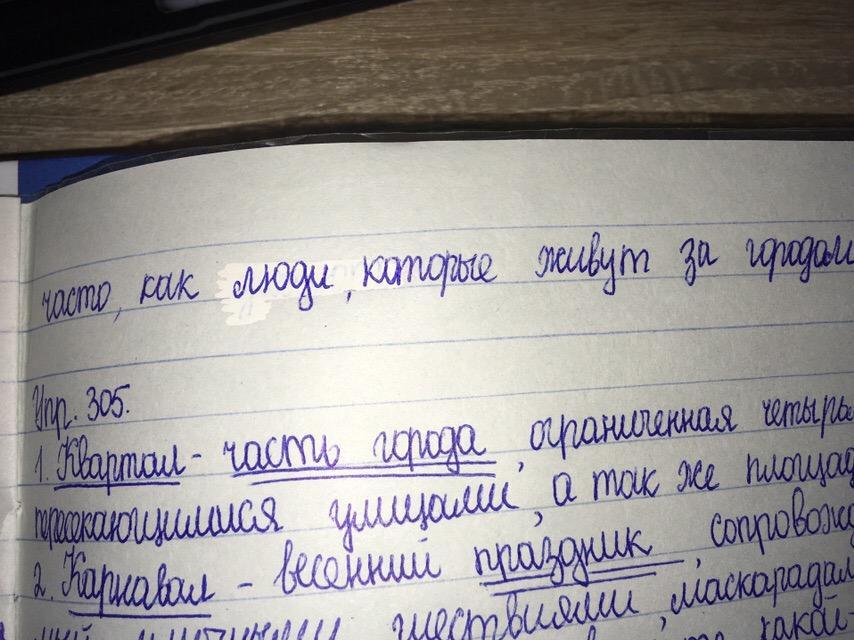 часто, как люди, которые живут за городом
Упр. 305.
1. Квартал - часть города, ограниченная четырь
пересекающимися улицами, а так же площад
2. Карнавал - весенний праздник, сопровожд
шествиями, маскарадам
какой-